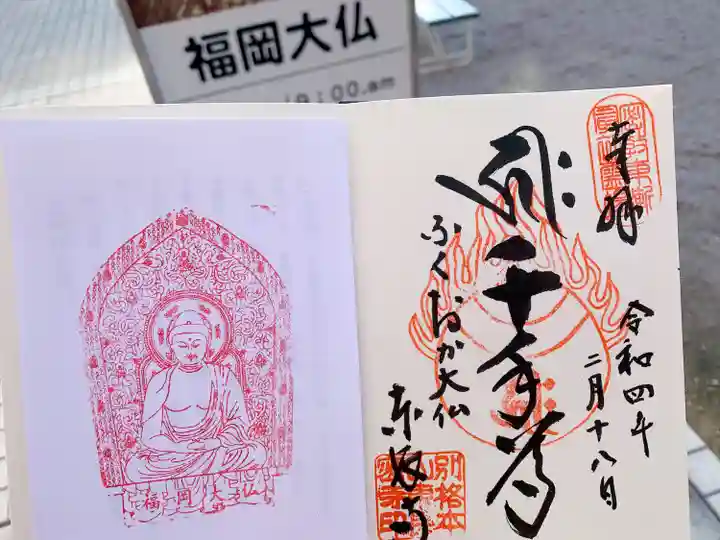 福岡大仏
9:00.am
福岡大仏
奉拝
令和四年
二月十八日
千手尊
ふくおか大仏
東長寺
別格本